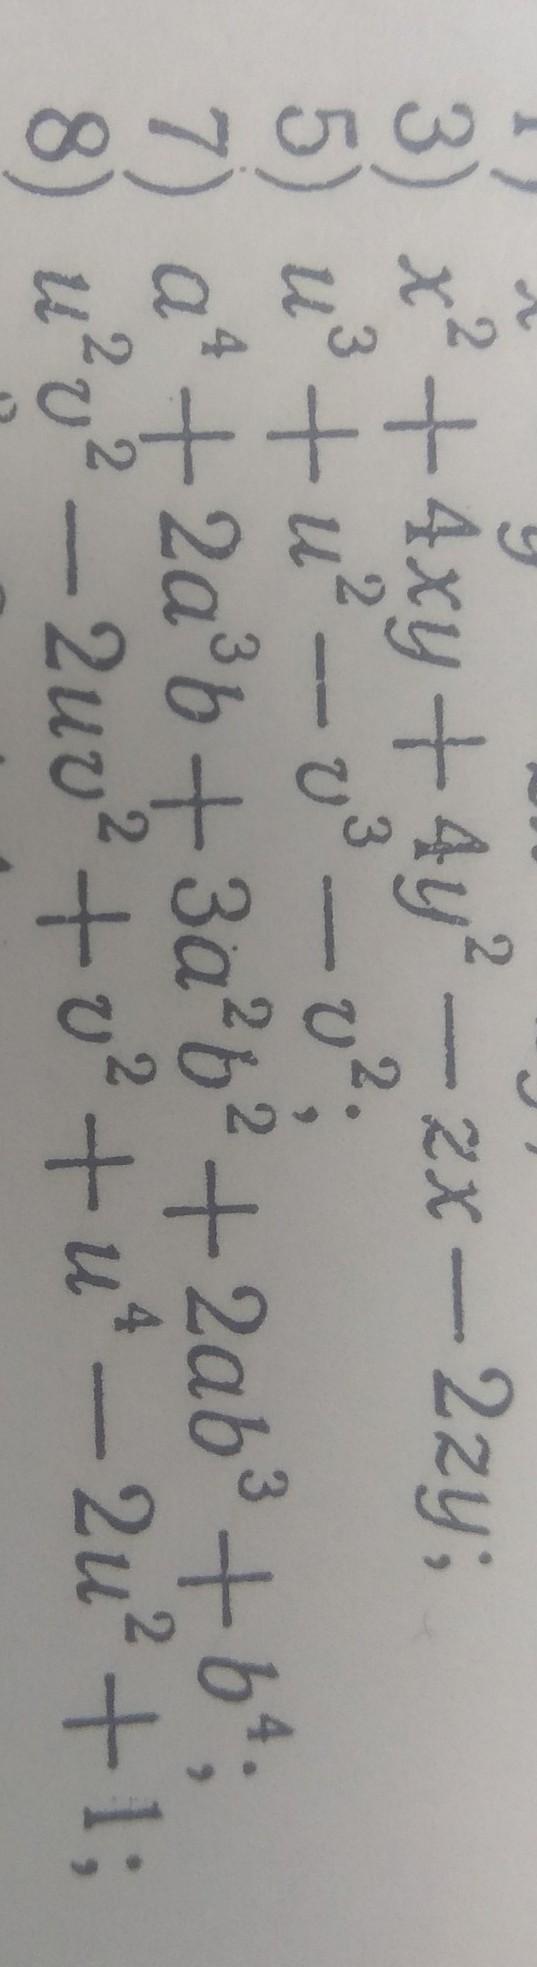 3) x² + 4xy + 4y² − zx − 2zy;
5) u³ + u² − v³ − v²;
7) a⁴ + 2a³b + 3a²b² + 2ab³ + b⁴;
8) u²v² − 2uv² + v² + u⁴ − 2u² + 1;